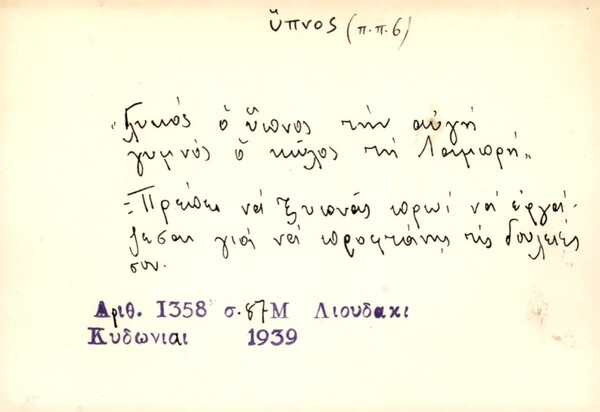 ὕπνος (π.π.6)
"Γλυκός ὁ ὕπνος τήν αὐγή
γυμνός ὁ κῶλος τή Λαμπρή"
=Πρέπει νά ξυπνᾶς πρωί νά ἐργά-
ζεσαι γιά νά προφτάνῃς τίς δουλειές
σου.
Αριθ. 1358 σ.87 Μ Λιουδακι
Κυδωνιαι 1939